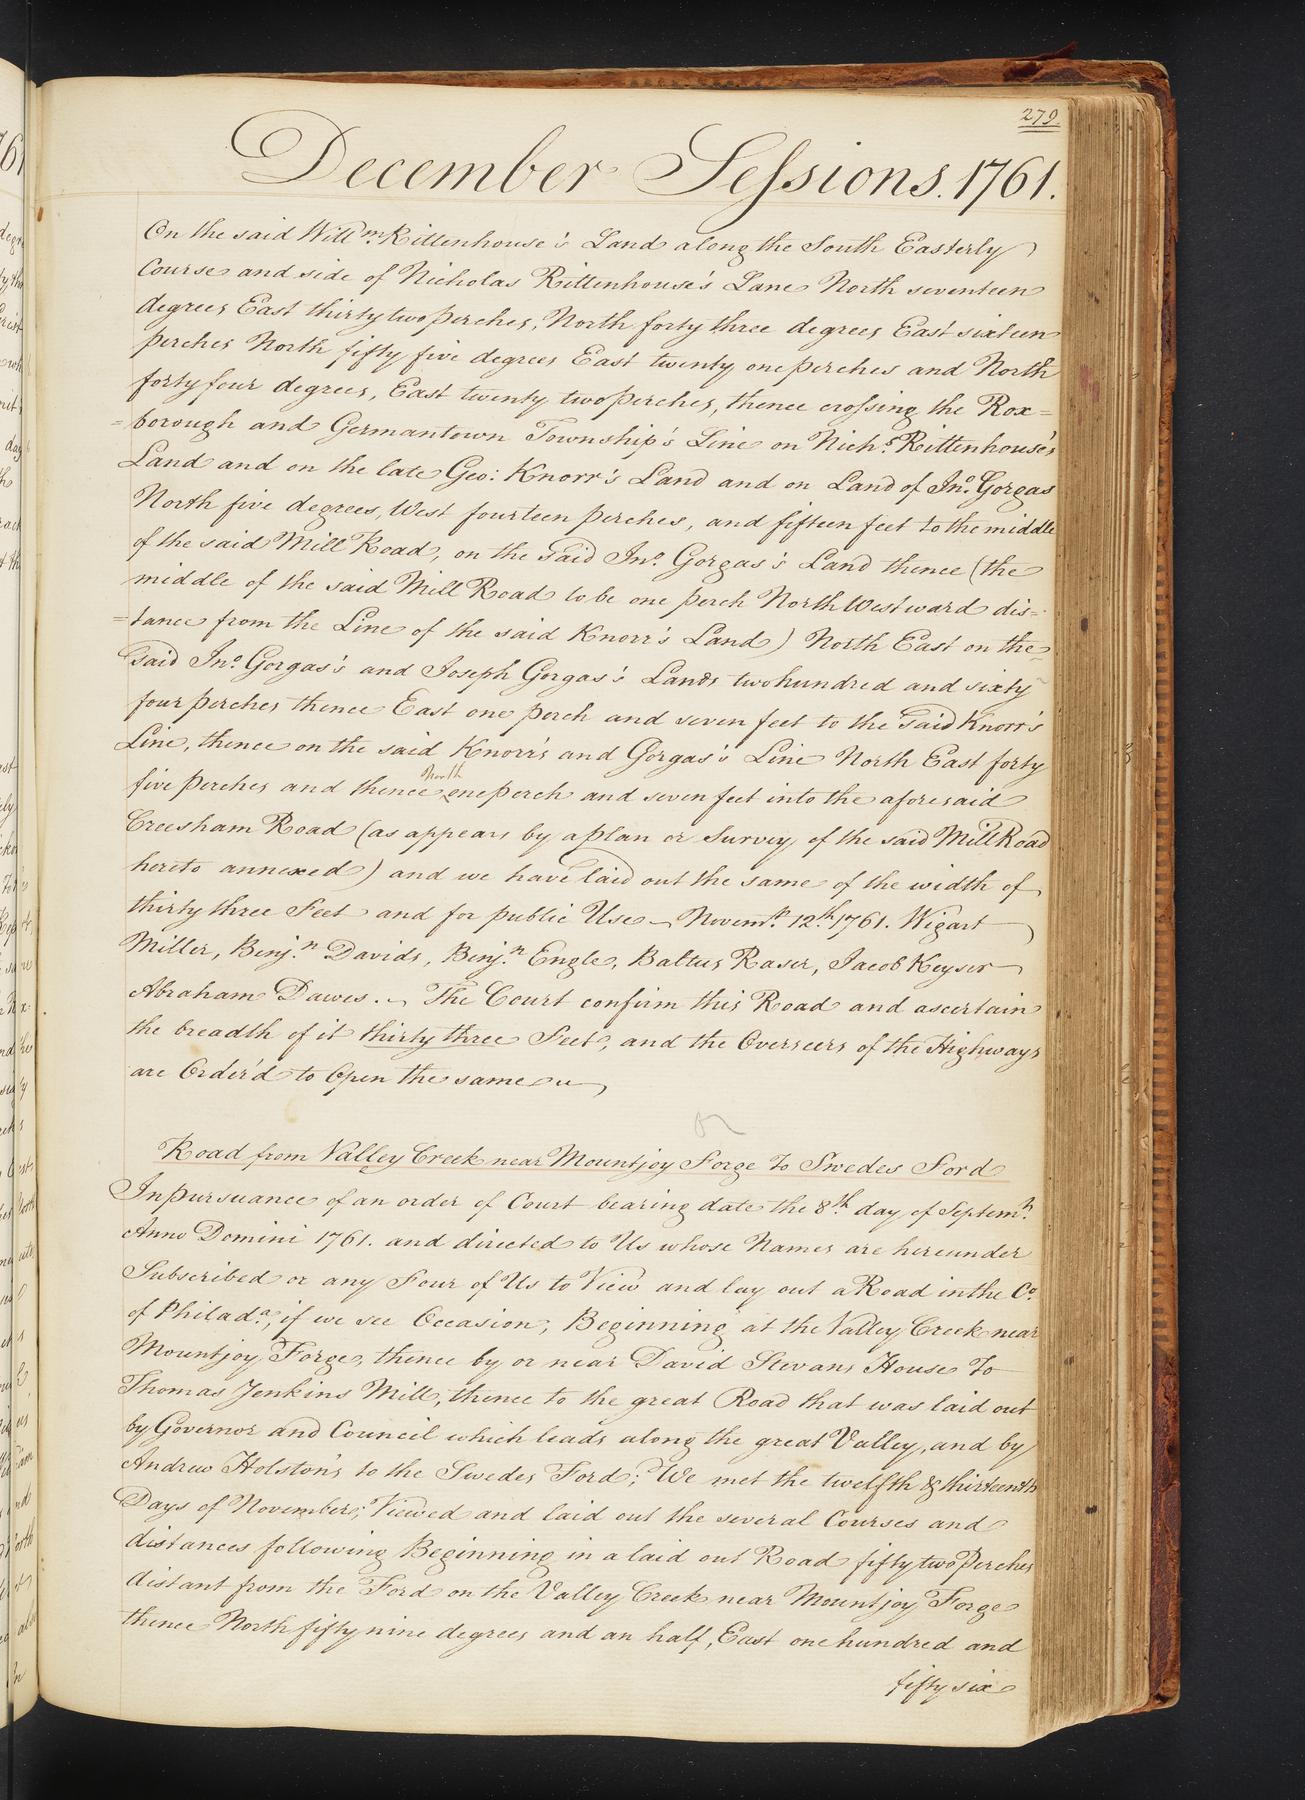 279.
December Sessions. 1761.
On the said Willm. Rittenhouse's Land along the South Easterly
Course and side of Nicholas Rittenhouse's Lane North seventeen
degrees East thirty two perches, North forty three degrees East sixteen
perches North fifty five degrees East twenty one perches and North
forty four degrees, East twenty two perches, thence crossing the Rox=
=borough and Germantown Township's Line on Nichs. Rittenhouse's
Land and on the late Geo: Knorr's Land and on Land of Jno. Gorgas
North five degrees, West fourteen perches, and fifteen feet to the middle
of the said Mill Road, on the said Jno. Gorgas's Land thence (the
middle of the said Mill Road to be one perch North Westward dis=
=tance from the Line of the said Knorr's Land) North East on the
said Jno. Gorgas's and Joseph Gorgas's Lands two hundred and sixty
four perches thence East one perch and seven feet to the said Knorr's
Line, thence on the said Knorr's and Gorgas's Line North East forty
five perches and thence North one perch and seven feet into the aforesaid
Creesham Road (as appears by a plan or Survey of the said Mill Road
hereto annexed) and we have laid out the same of the width of
thirty three Feet and for public Use. Novemr. 12th. 1761. Wigart
Miller, Benjn. Davids, Benjn. Engle, Baltus Raser, Jacob Keyser
Abraham Dawes. The Court confirm this Road and ascertain
the breadth of it thirty three Feet, and the Overseers of the Highways
are Order'd to Open the same
Road from Valley Creek near Mountjoy Forge To Swedes Ford
In pursuance of an order of Court bearing date the 8th. day of Septemr.
Anno Domini 1761. and directed to Us whose Names are hereunder
Subscribed or any Four of Us to View and lay out a Road in the Co.
of Philada., if we see Occasion, Beginning at the Valley Creek near
Mountjoy Forge, thence by or near David Stevans House To
Thomas Jenkins Mill, thence to the great Road that was laid out
by Governor and Council which leads along the great Valley, and by
Andrew Holston's to the Swedes Ford; We met the twelfth & thirteenth
Days of November; Viewed and laid out the several Courses and
distances following Beginning in a laid out Road fifty two Perches
distant from the Ford on the Valley Creek near Mountjoy Forge
thence North fifty nine degrees and an half, East one hundred and
fifty six